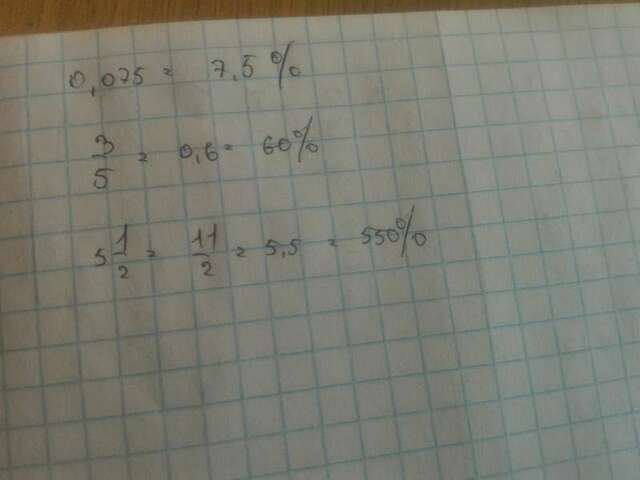 0,075 = 7,5%
3/5 = 0,6 = 60%
5 1/2 = 11/2 = 5,5 = 550%